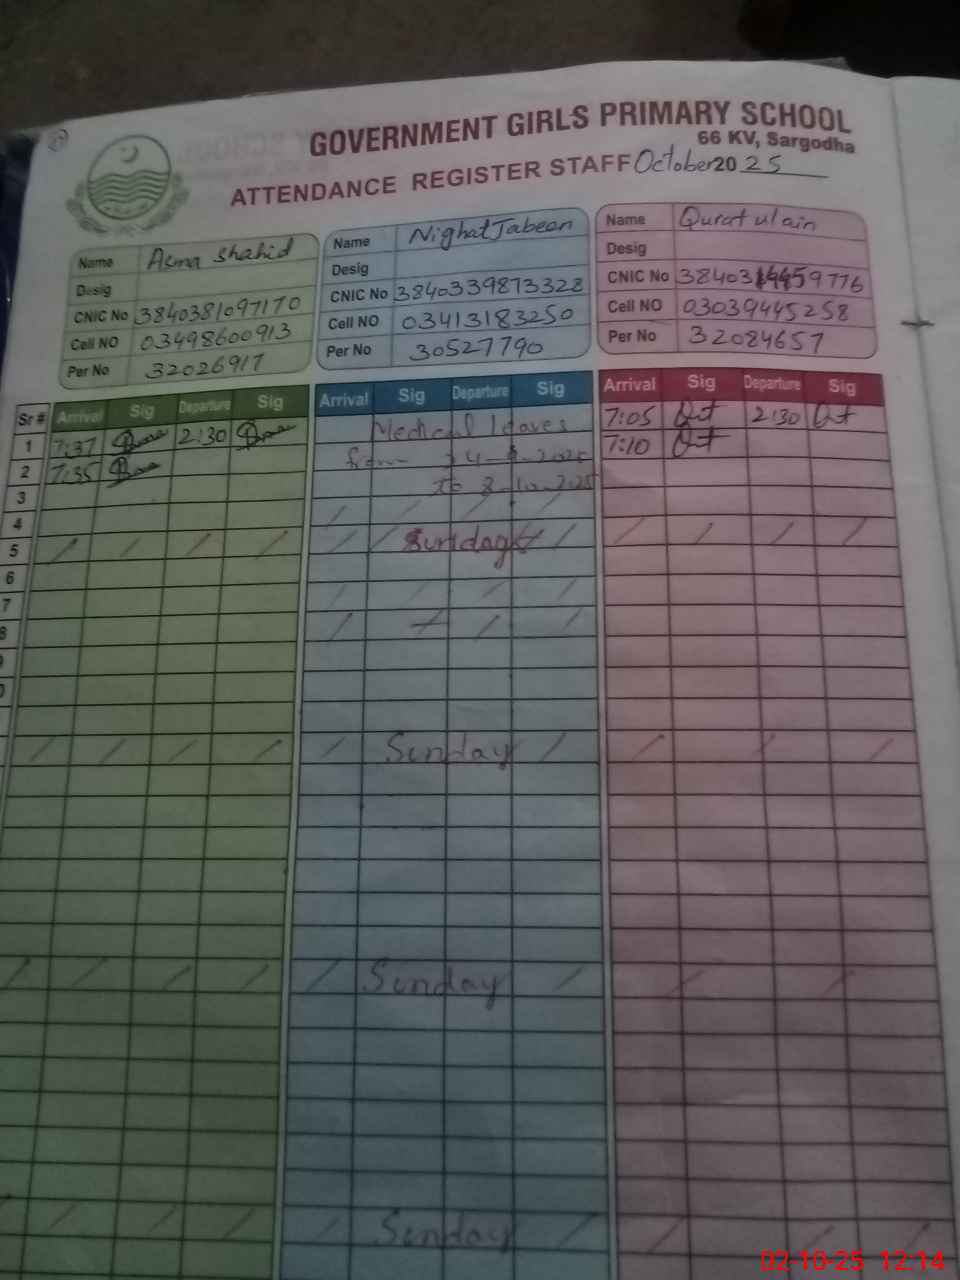 GOVERNMENT GIRLS PRIMARY SCHOOL
66 KV, Sargodha
ATTENDANCE REGISTER STAFF October 2025
Name Asma Shahid
Desig
CNIC No 3840381097170
Cell NO 03498600913
Per No 32026917
Name Nighat Jabeen
Desig
CNIC No 3840339873328
Cell NO 03413183250
Per No 30527790
Name Qurat ul ain
Desig
CNIC No
Cell NO 03039445258
Per No 32084657
Sr # Arrival Sig Departure Sig Arrival Sig Departure Sig Arrival Sig Departure Sig
1 7:37 2:30 Medical leaves 7:05 2:30
2 7:35 from 7:10
3 to
4
5 Sunday
6
7
8
Sunday
Sunday
Sunday
02-10-25 12:14